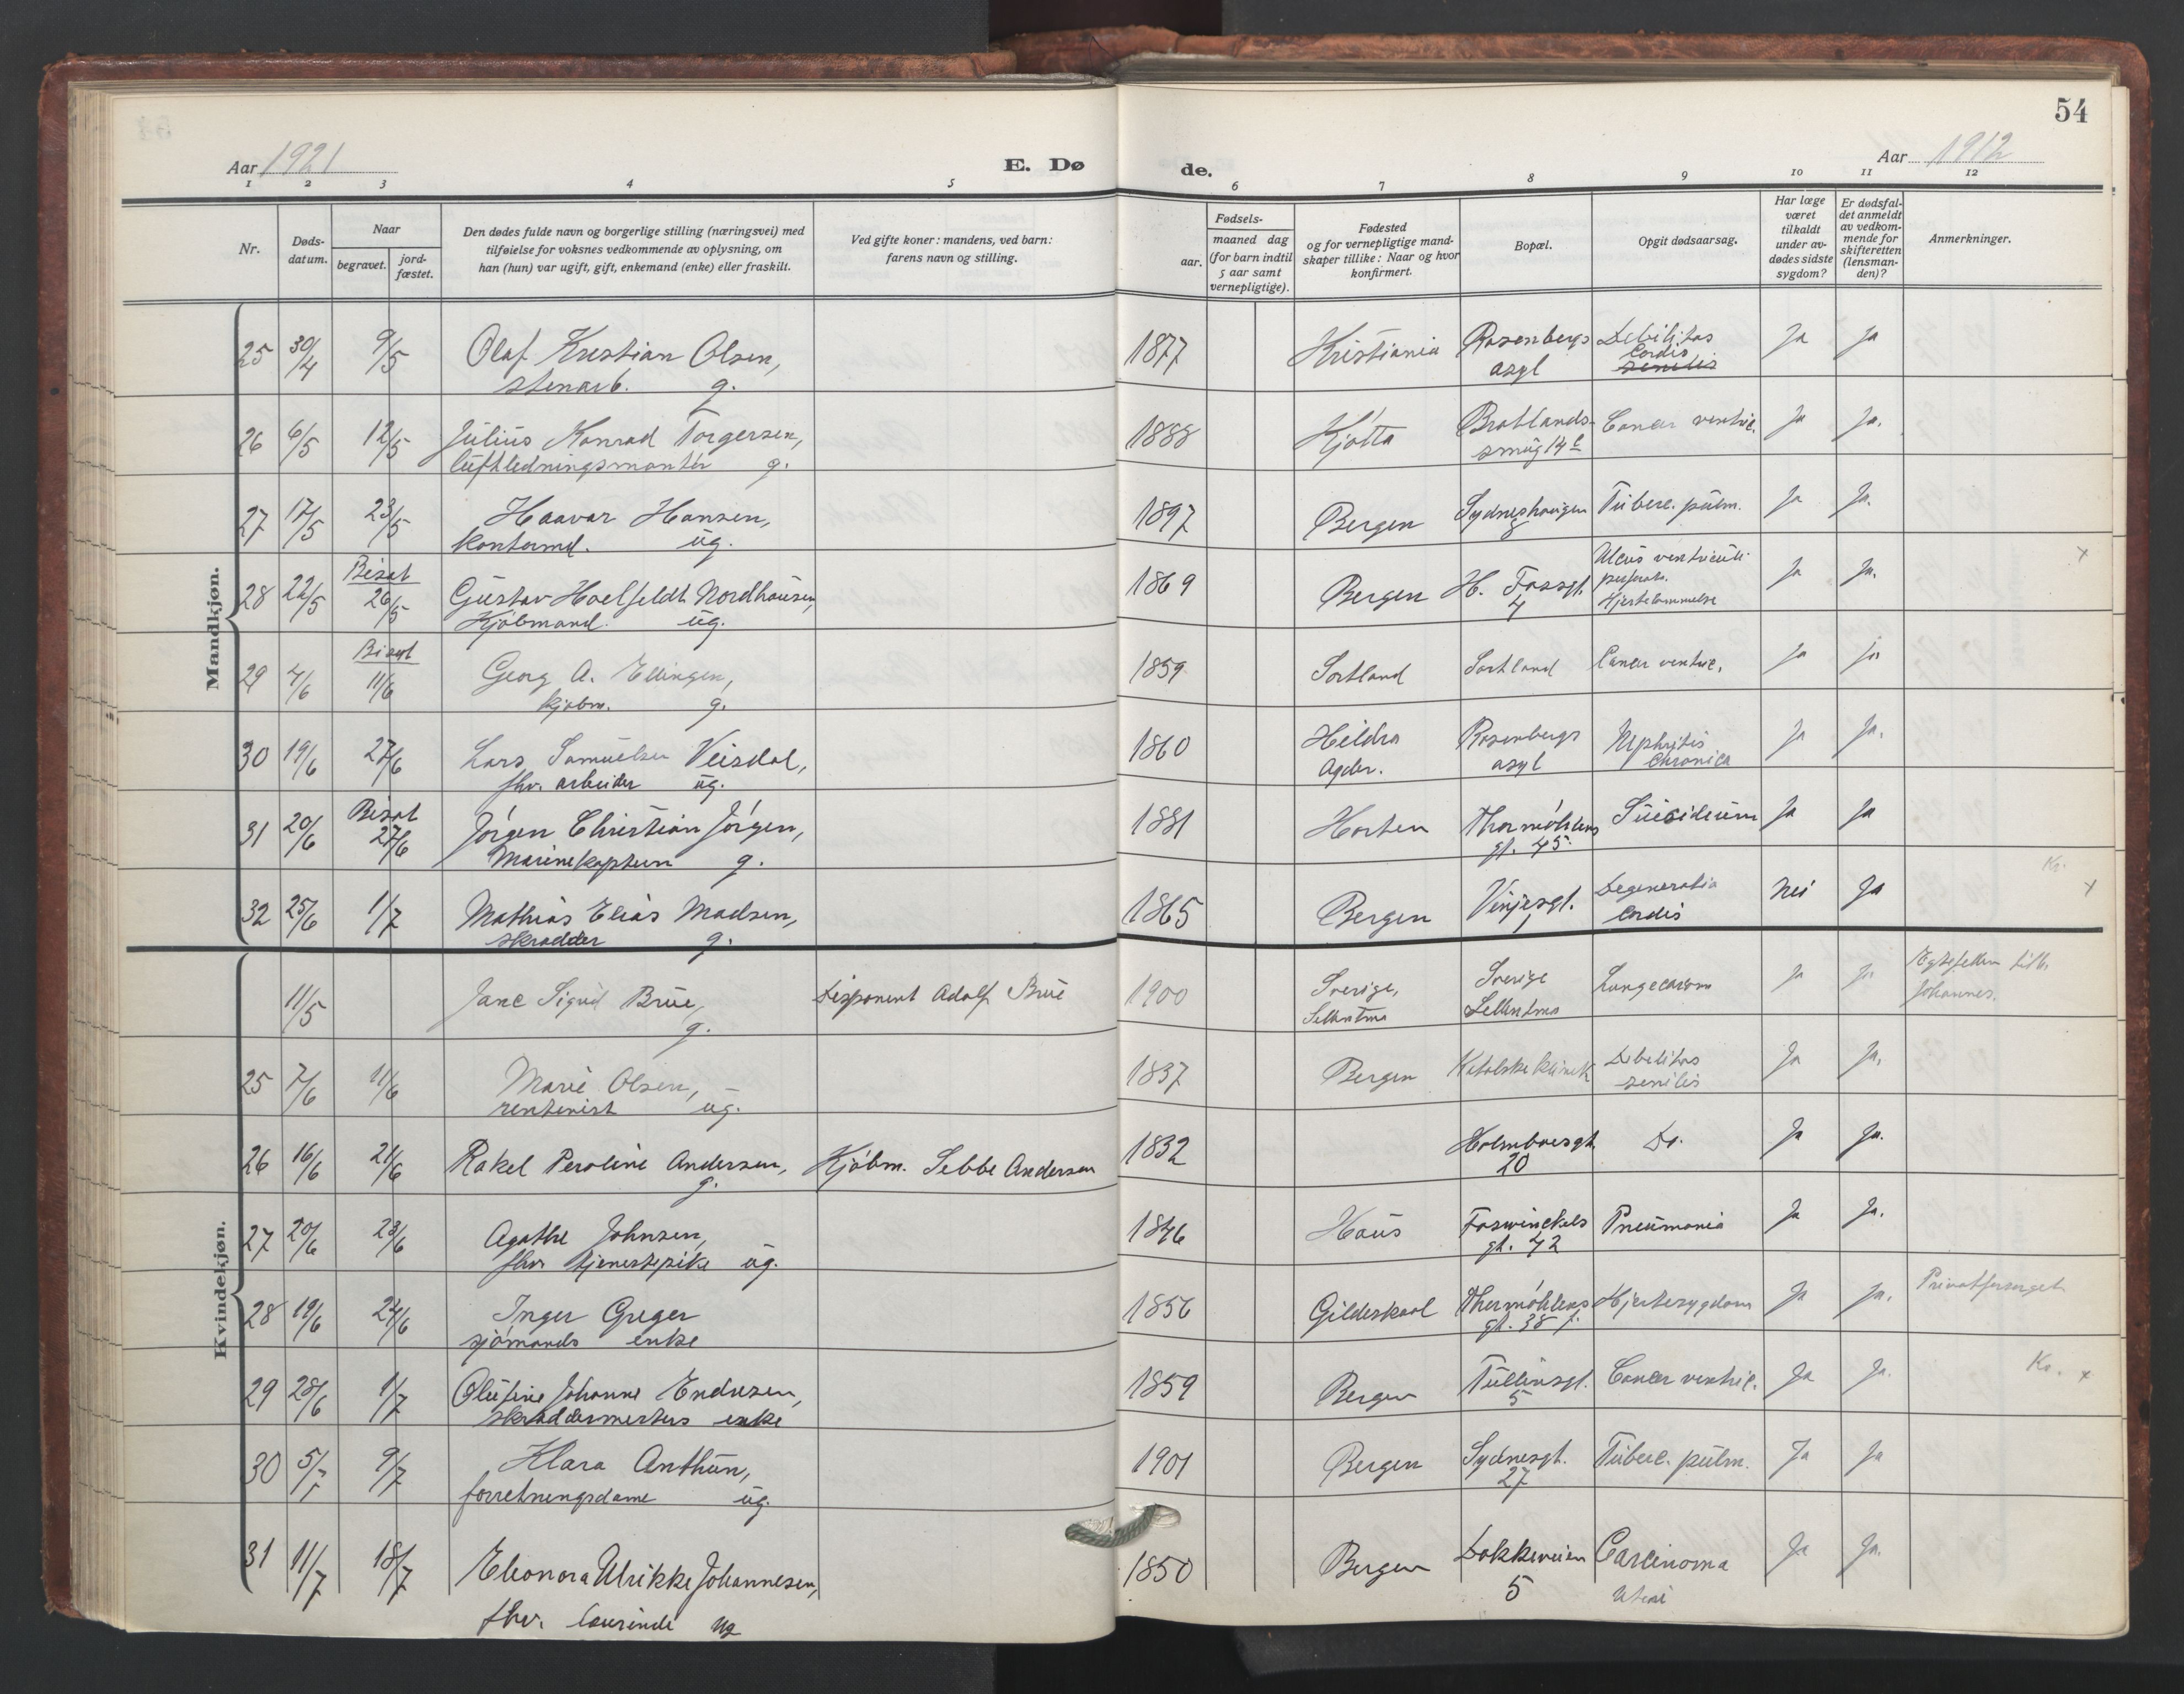 54
Aar 1921
E. Dø
de.
Aar 1912
1 2 3 4 5 6 7 8 9 10 11 12
Nr.
Døds-
datum.
Naar
begravet.
jord-
fæstet.
Den dødes fulde navn og borgerlige stilling (næringsvei) med
tilføielse for voksnes vedkommende av oplysning, om
han (hun) var ugift, gift, enkemand (enke) eller fraskilt.
Ved gifte koner: mandens, ved barn:
farens navn og stilling.
Fødsels-
aar.
maaned dag
(for barn indtil
5 aar samt
vernepligtige).
Fødested
og for vernepligtige mand-
skaper tillike: Naar og hvor
konfirmert.
Bopæl.
Opgit dødsaarsag.
Har læge
været
tilkaldt
under av-
dødes sidste
sygdom?
Er dødsfal-
det anmeldt
av vedkom-
mende for
skifteretten
(lensman-
den)?
Anmerkninger.
Mandkjøn.
25 30/4 9/5 Olaf Kristian Olsen, 1877 Kristiania Rosenbergs Debilitas Ja Ja
stenarb. g. asyl Cordis
senilis
26 6/5 12/5 Julius Konrad Torgersen, 1888 Kjøtta Cancer ventric. Ja Ja.
luftledningsmontør g. smug 14
27 17/5 23/5 Haavar Hansen, 1897 Bergen Sydneshaugen Tuberc. pulm. Ja Ja.
kontormd. ug. 8
Bisat
28 22/5 26/5 Gustav Hoelfeldt Nordhausen, 1869 Bergen H. Fossgt. Ulcus ventriculi Ja Ja. x
Kjøbmand. ug. 4 perforat.
Hjertelammelse
Bisat
29 4/6 11/6 Georg A. Ellingen, 1859 Sortland Sortland Cancer ventric. Ja ja
kjøbm. g.
30 19/6 27/6 Lars Samuelsen Veisdal, 1860 Heldra Rosenbergs Nephritis Ja Ja.
fhv. arbeider ug. Agder. asyl Chronica
Bisat
31 20/6 27/6 Jørgen Christian Jörgen, 1881 Horten Thormöhlens Suicidium Ja Ja
Marinekaptein g. gt. 45.
32 25/6 1/7 Mathias Elias Madsen, 1865 Bergen Vinjesgt. Degeneratio Nei Ja Kr. x
skrædder g. 1 Cordis
Kvindekjøn.
11/5 Jane Sigrid Brue, Disponent Adolf Brue 1900 Sverige, Sverige Lungecarcom Ja Ja Egtefellen
g. Johannes.
25 7/6 11/6 Marie Olsen, 1837 Bergen Katolske klinik Debilitas Ja Ja.
rentenist ug. senilis
26 16/6 21/6 Rakel Peroline Andersen, Kjøbm. Sebbe Andersen 1832 Holmboesgt. Do. Ja Ja.
g. 20
27 20/6 23/6 Agathe Johnsen, 1846 Haus Foswinckels Pneumonia Ja Ja.
fhv. tjenestepike ug. gt. 42
28 19/6 24/6 Inger Greger 1856 Gildeskaal Thormöhlens Hjertesygdom Ja Ja. Privatforsorget
sjömands enke gt. 38
29 28/6 1/7 Olufine Johanne Endresen, 1859 Bergen Tullinsgt. Cancer ventric. Ja Ja. Kr. x
skræddermesters enke 5
30 5/7 9/7 Klara Anthun, 1901 Bergen Sydnesgt. Tuberc. pulm. Ja Ja
forretningsdame ug. 27
31 11/7 18/7 Eleonora Ulrikke Johannesen, 1850 Bergen Dokkeveien Carcinoma Ja Ja.
fhv. ug 5 uteri